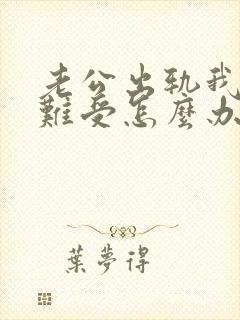 老公出軌我
難受怎麼办
葉夢得